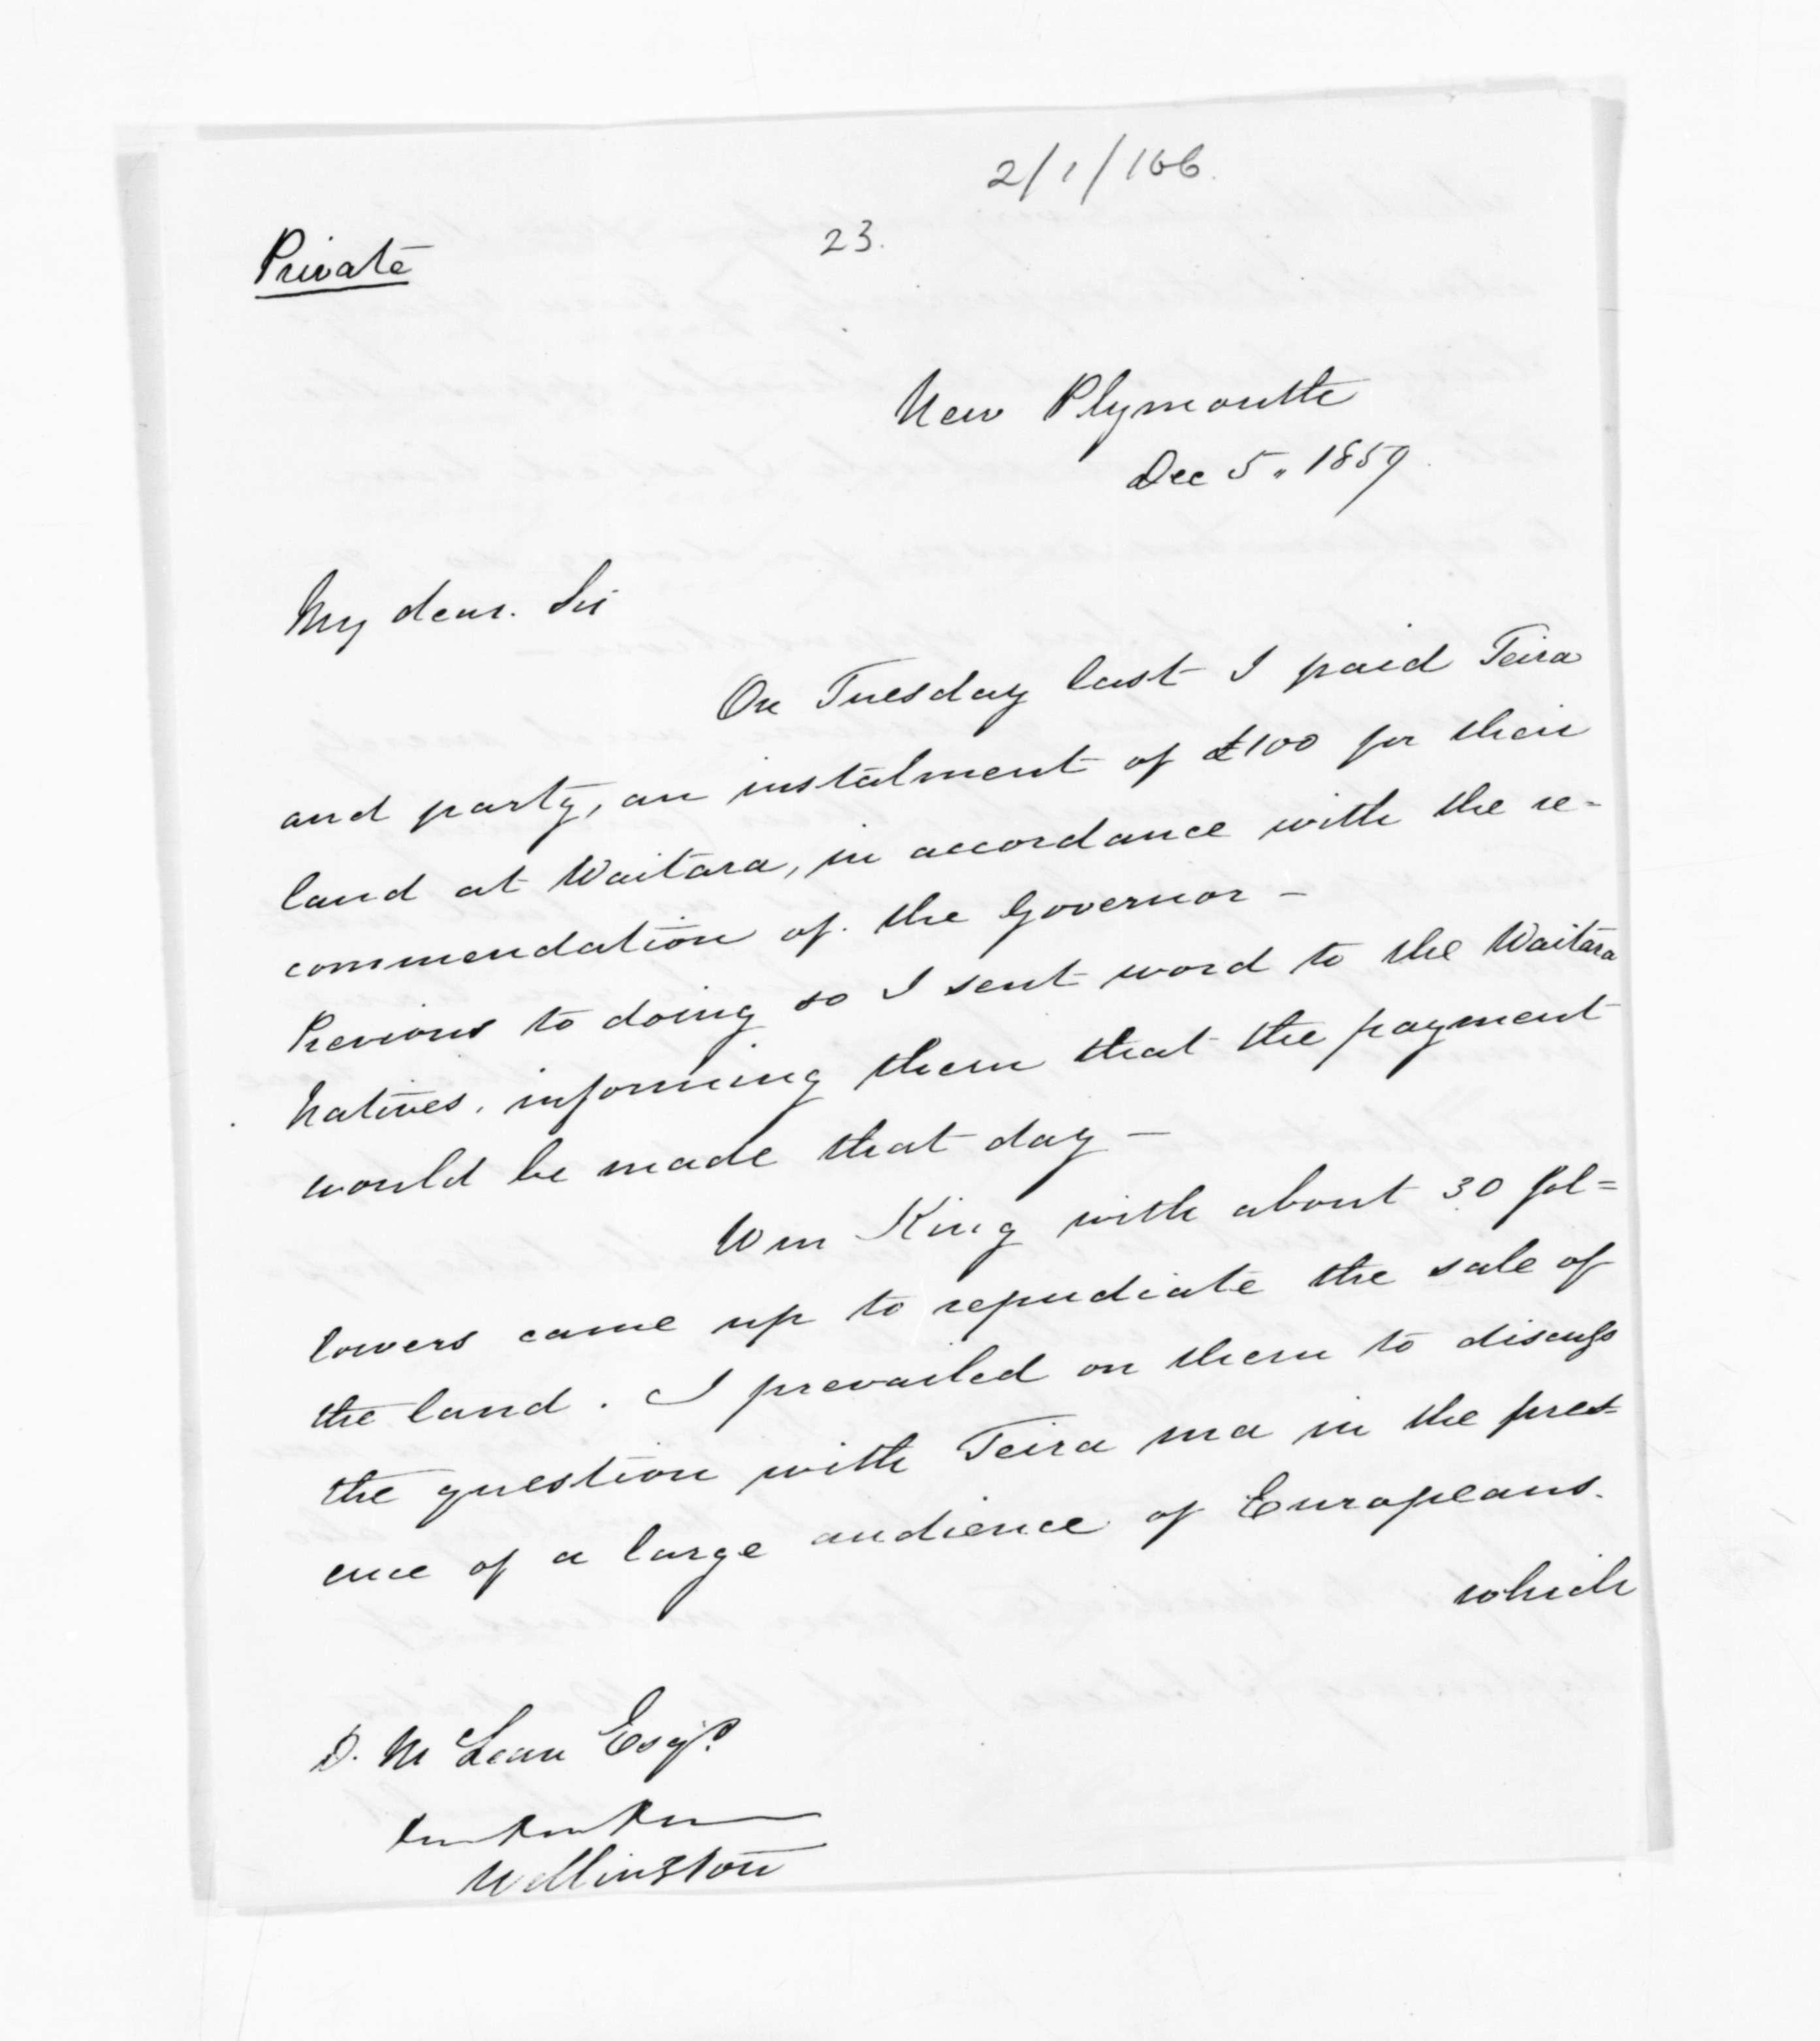 2/1/166.
23.
Private
New Plymouth
Dec 5 " 1859.
My dear. Sir
On Tuesday last I paid Teira
and party, an instalment of £100 for their
land at Waitara, in accordance with the re-
commendation of. the Governor -
Previous to doing so I sent word to the Waitara
Natives. informing them that the payment
would be made that day -
Wm King with about 30 fol=
lowers came up to repudiate the sale of
the land. I prevailed on them to discuss
the question with Teira ma in the pres=
ence of a large audience of Europeans.
which
D. McLean Esqre.
Wellington